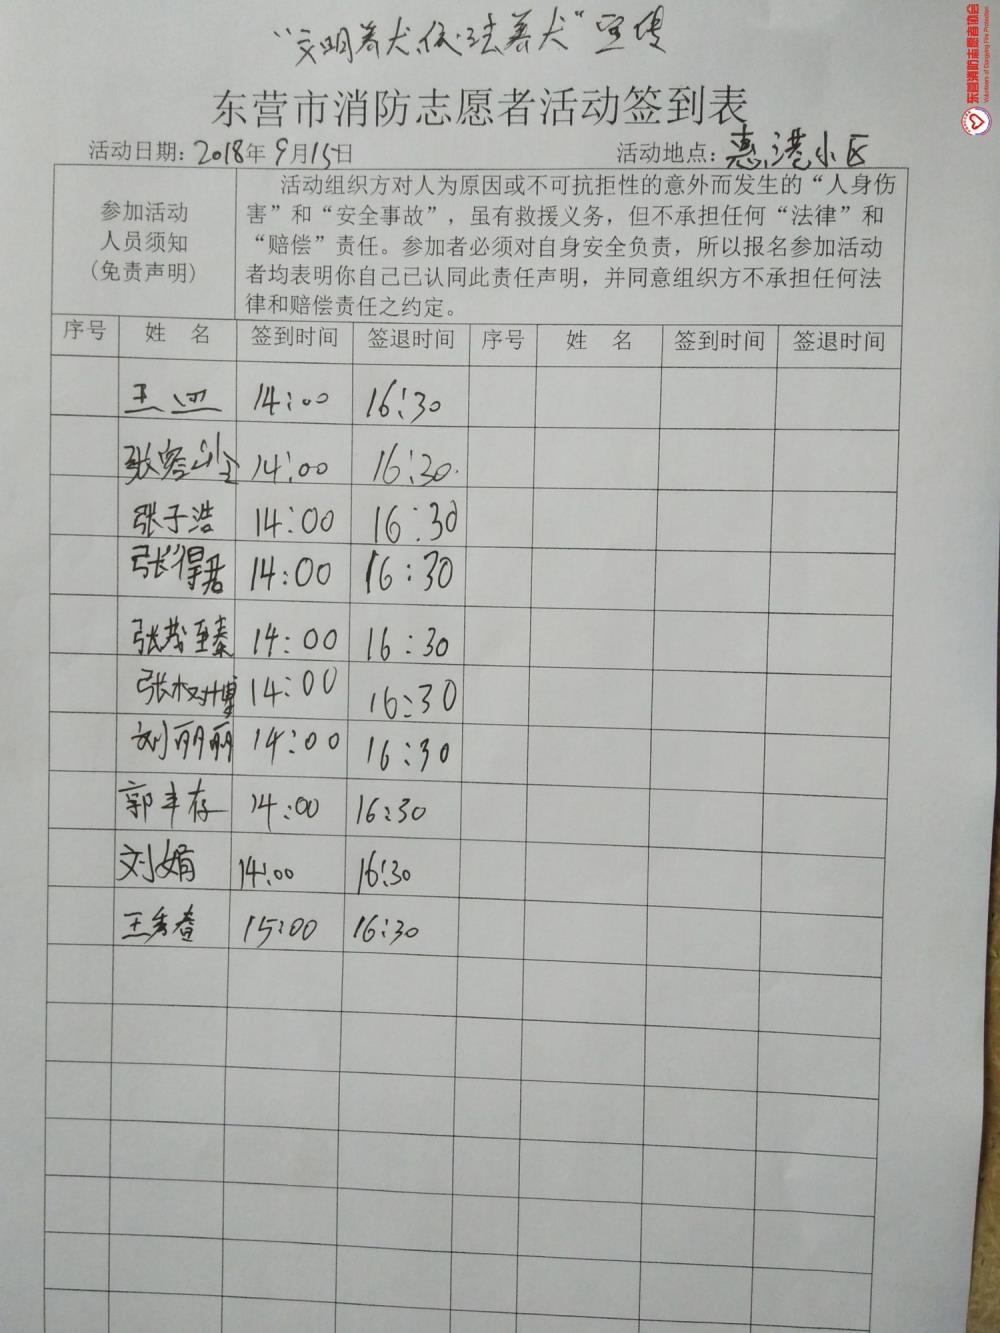 “文明养犬，依法养犬”宣传
东营市消防志愿者活动签到表
活动日期：2018年9月15日 活动地点：惠港小区
参加活动
人员须知
(免责声明)
活动组织方对人为原因或不可抗拒性的意外而发生的“人身伤
害”和“安全事故”，虽有救援义务，但不承担任何“法律”和
“赔偿”责任。参加者必须对自身安全负责，所以报名参加活动
者均表明你自己已认同此责任声明，并同意组织方不承担任何法
律和赔偿责任之约定。
序号 姓 名 签到时间 签退时间 序号 姓 名 签到时间 签退时间
14:00 16:30
张 14:00 16:30
张子浩 14:00 16:30
张得君 14:00 16:30
张茂臻 14:00 16:30
张树博 14:00 16:30
刘丽丽 14:00 16:30
郭丰存 14:00 16:30
刘娟 14:00 16:30
王秀春 15:00 16:30
东营消防志愿者协会
Volunteers of Dongying Fire Protection